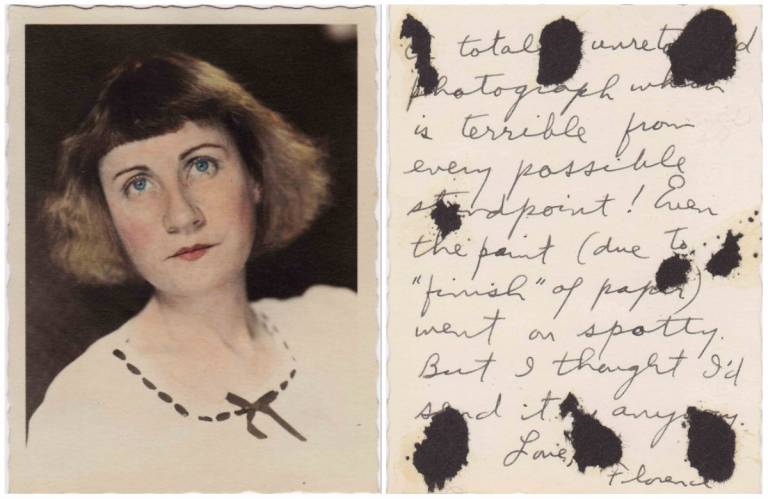 A totally unretouched
photograph which
is terrible from
every possible
standpoint! Even
the paint (due to
"finish" of paper)
went on spotty.
But I thought I'd
send it anyway.
Love,
Florence